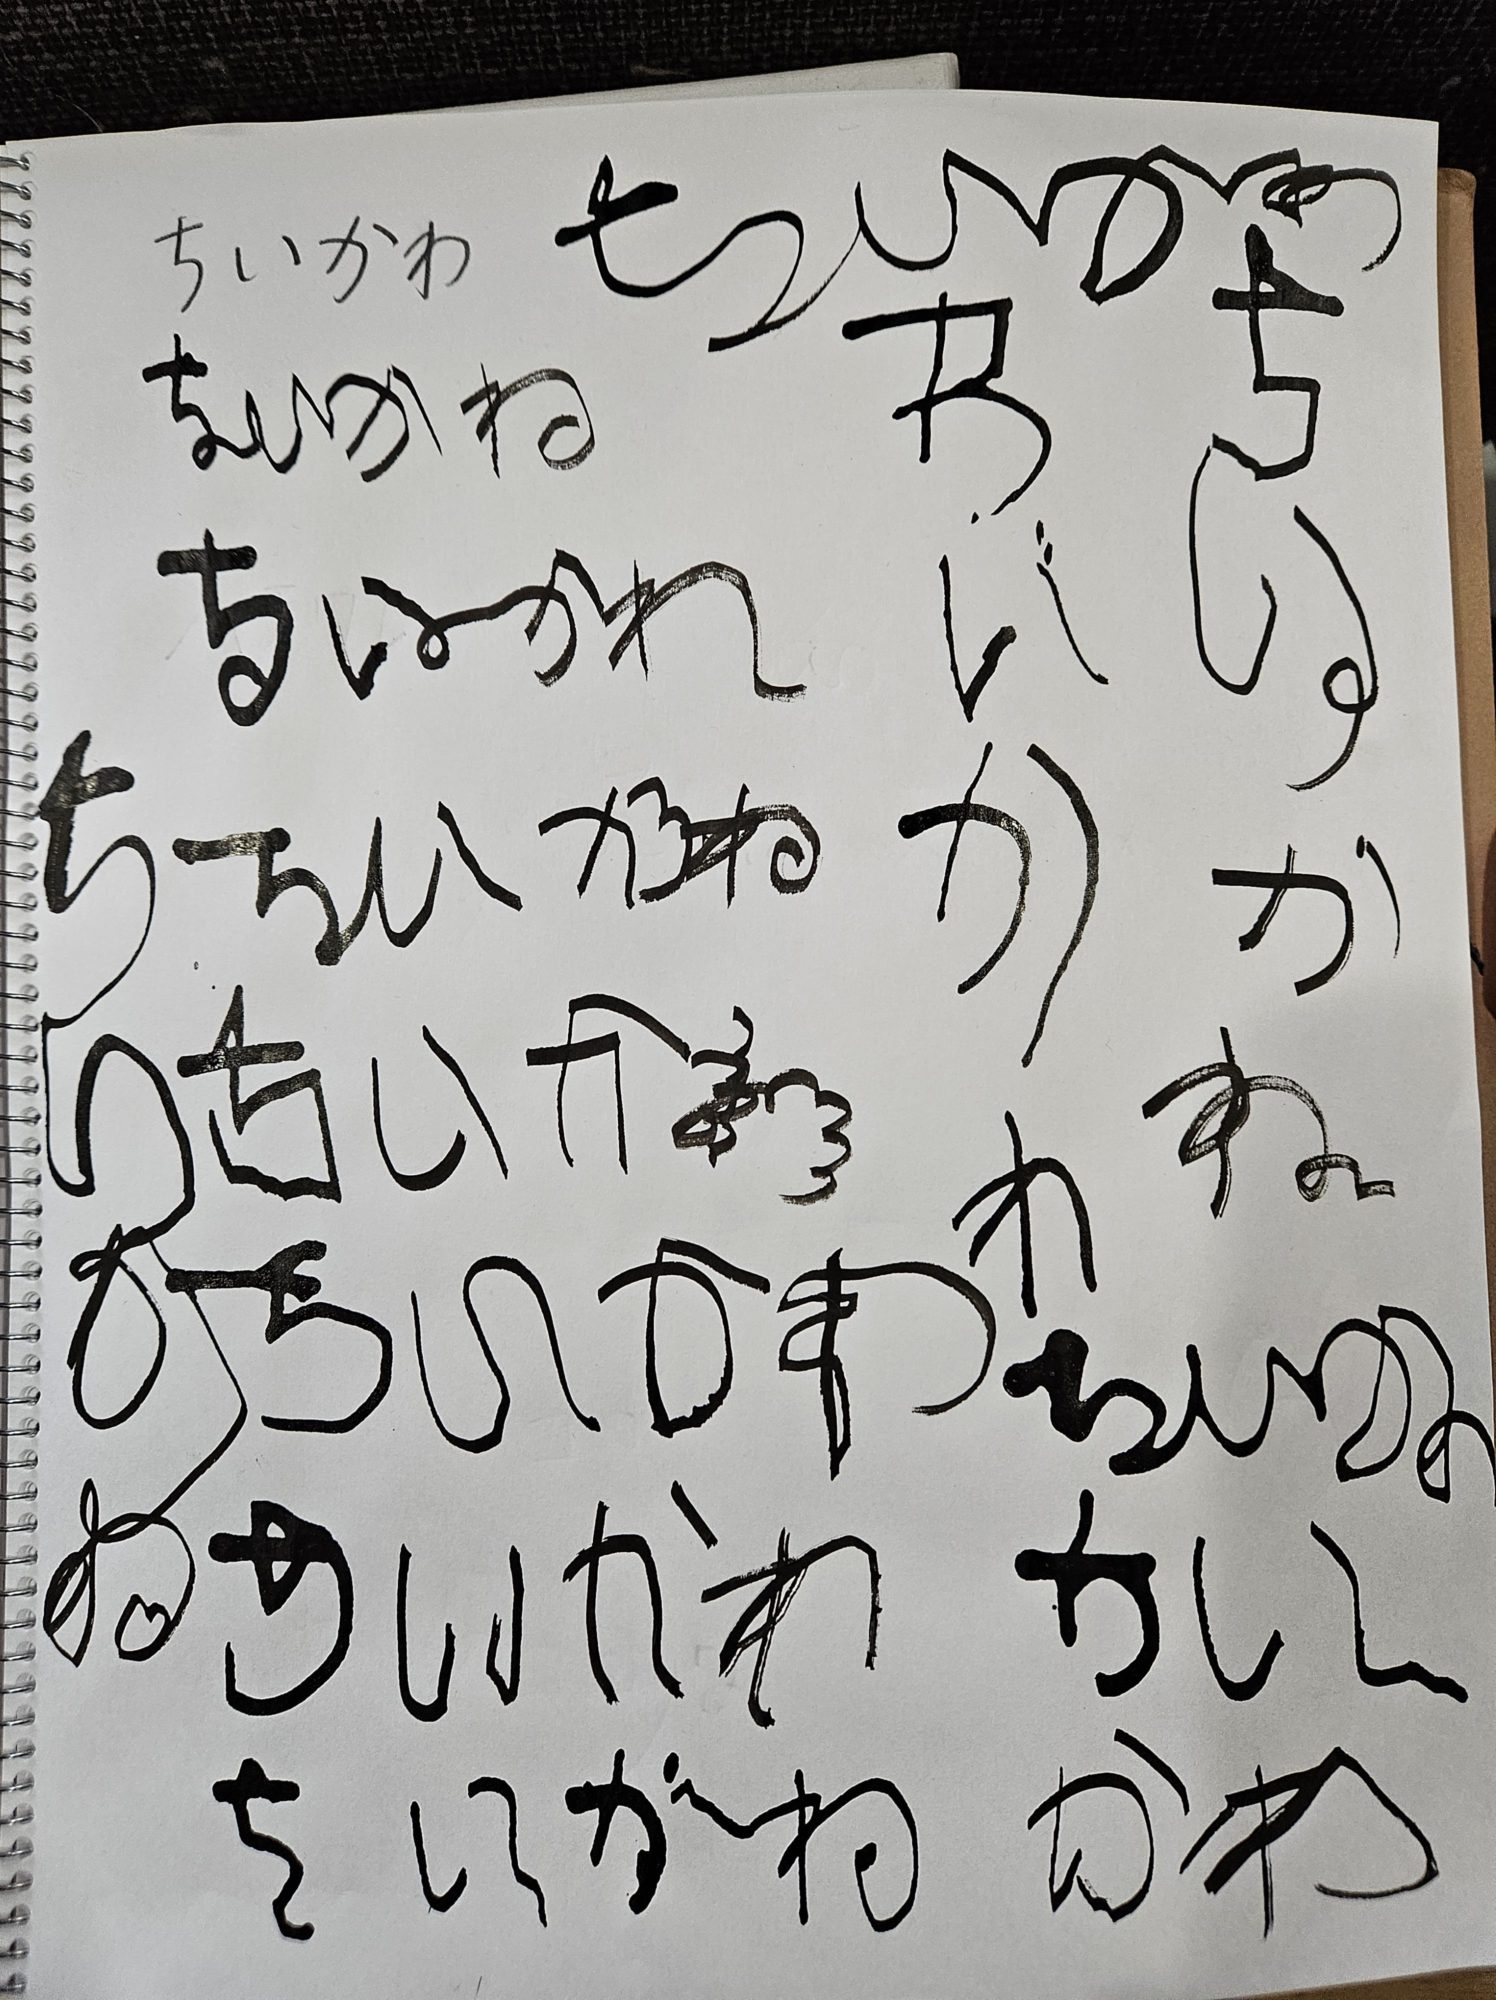 ちいかわ
ちいかわ
ちいかね
ちいかれ
ちいかね
ちいか
ちいかわ
ちいかわ
ちいがね
ちいかわ
ちいかね
ちいかね
ちいかわ
ちい
かわ